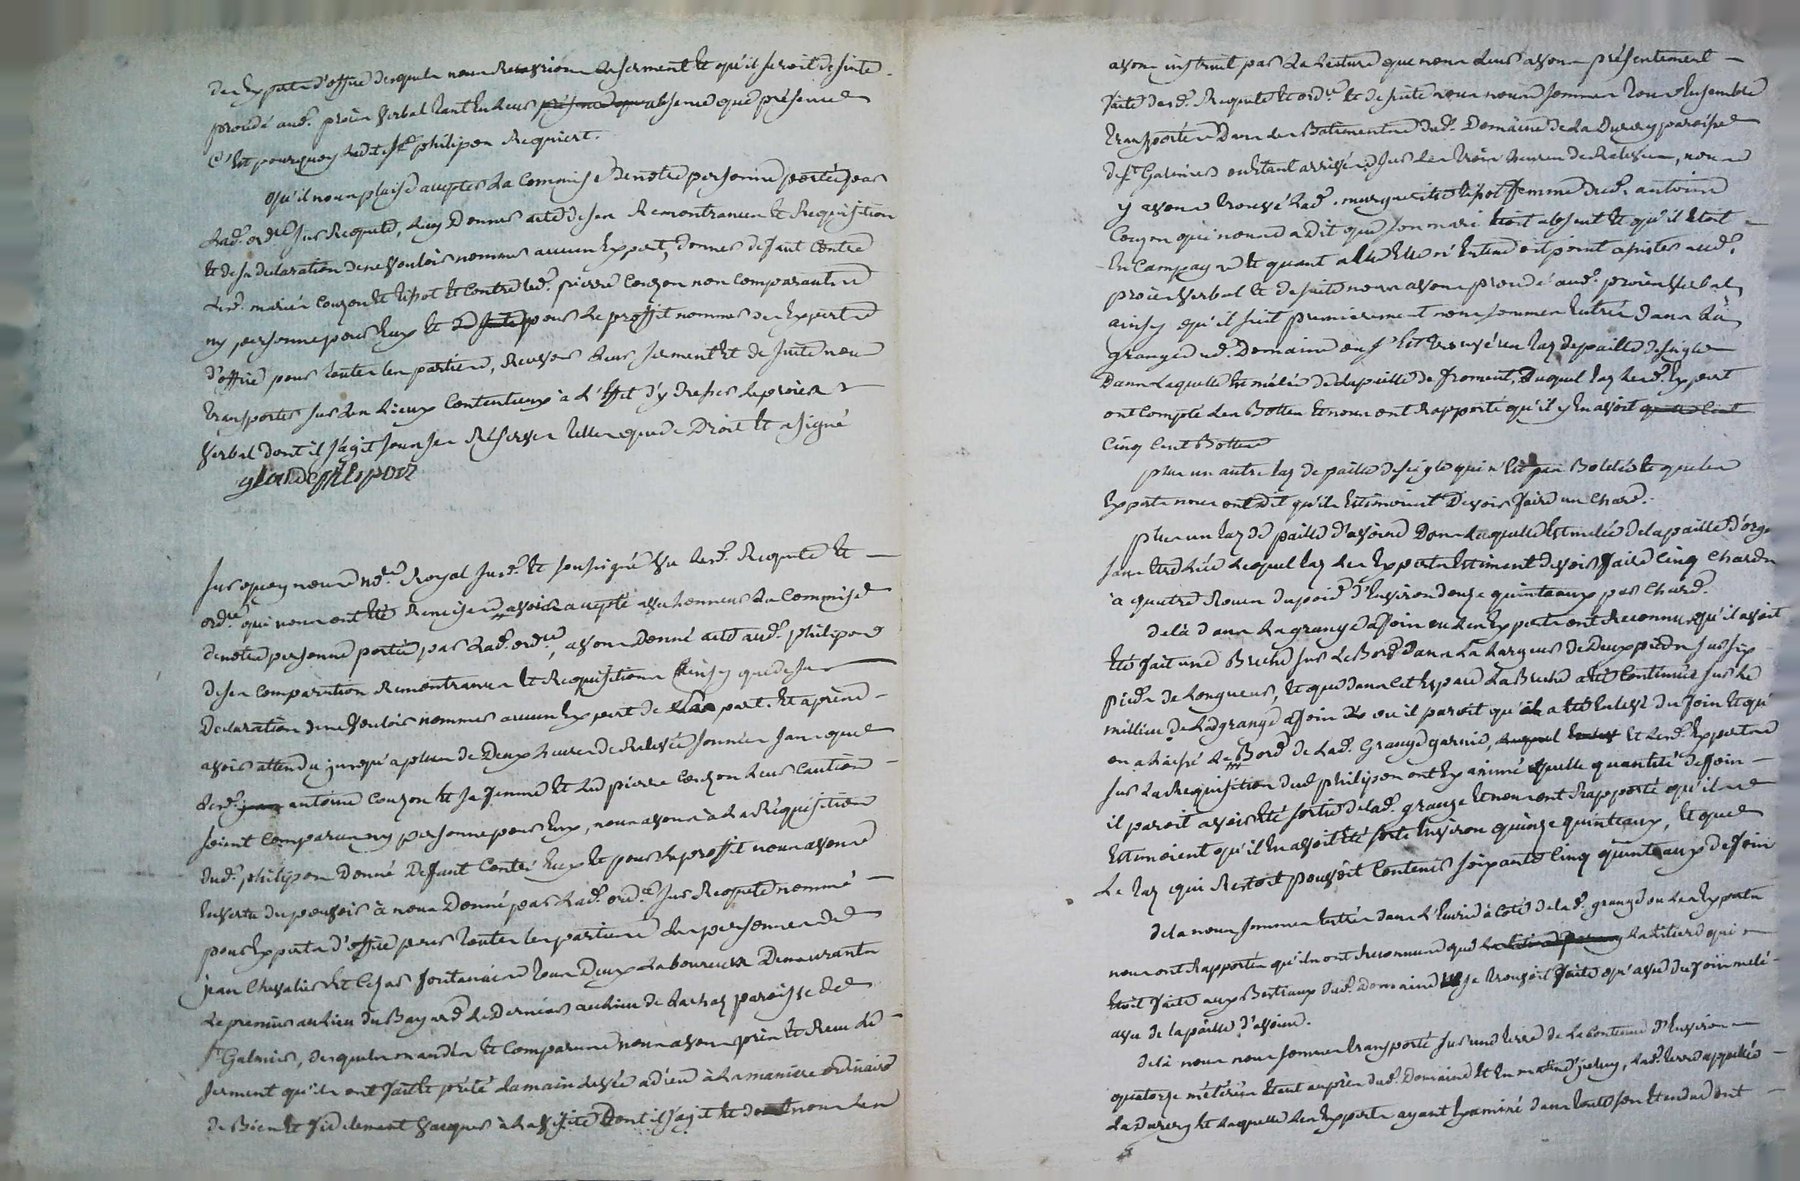 des experts d'office desquels nous recevrions le serment et qu'il seroit de suite
procédé aud. procès verbal tant en leur présence que absence que présence
C'est pourquoy ledit Sr philipon Requiert.
qu'il nous plaise accepter la Commise de notre personne portée par
lad. ordce sur Requete, luy Donner acte de ses Remontrances et Requisition
et de sa declaration de ne vouloir nommer aucun Expert, donner defaut contre
lesd. mariés Couzon et tipot et contre led. pierre Couzon non comparants
ny personne pour Eux et pour le proffit nommer des Experts
d'office pour toutes les parties, Recevoir leur serment et de suite nous
transporter sur les Lieux Contentieux à l'Effet d'y dresser le procès
verbal dont il s'agit sous les Réserves telles que de Droit et a signé
glaude philipon
sur quoy nous nore Royal susd. et soussigné vu lesd. Requete et
ordce qui nous ont été Remises avoir accepté avec honneur la Commise
de notre personne portée par lad. ordce, avons Donné acte aud. philipon
de sa Comparution Remontrances et Requisitions ainsy que de sa
Declaration de ne vouloir nommer aucun Expert de sa part. Et après
avoir attendu jusqu'a plus de Deux heures de Relevée sonnées sans que
lesd. antoine Couzon et sa femme et led pierre Couzon leur Caution
soient Comparus ny personne pour Eux, nous avons à la Réquisition
dud. philipon donné Defaut Contre Eux et pour le proffit nous avons
En vertu du pouvoir à nous Donné par lad. ordce sur Requete nommé
pour Experts d'office pour toutes les parties les personnes de
jean Chevalier et Cezar fontanaire tous Deux Laboureurs Demeurants
le premier au lieu du Bayard le Dernier au lieu de paroisse de
St Galmier, desquels mandés et Comparus nous avons pris et Reçu le
serment qu'ils ont fait et prété la main levée a dieu à la maniere ordinaire
de Bien et fidelement vacquer à la visite Dont il s'agit et dont nous les
avons instruit par la lecture que nous leur avons présentement
faite desd. Requete et ordce et de suite nous nous sommes tous Ensemble
transportés Dans les Batiments dud. Domaine de la Durery paroisse
de St Galmier ou étant arrivés sur les trois heures de Relevée, nous
y avons trouvé lad. marguerite tipot femme dud. antoine
Couzon qui nous a dit que son mari étoit absent et qu'il étoit
En Campagne et quant a Elle Elle n'Entendoit point assister aud.
procès verbal et de suite nous avons procédé aud. procès verbal
ainsy qu'il suit premierement nous sommes Entrés dans la
grange ud. Domaine ou s'est trouvé un tas de paille de seigle
Dans laquelle est mélée de la paille de froment, Duquel tas lesd. Experts
ont Compté les Bottes et nous ont Rapporté qu'il y En avoit
Cinq Cent Bottes
plus un autre tas de paille de seigle qui n'est pas Botelée et que les
Experts nous ont Dit qu'ils Estimoient Devoir faire un Chard.
plus un tas de paille d'avoine Dans laquelle est mélée de la paille d'orge
sans etre liée lequel tas les Experts Estiment devoir faire Cinq Chards
a quatre Roues du poid d'Environ douze quintaux par Chard.
delà dans la grange a foin ou les Experts ont Reconnu qu'il avoit
été fait une Breche sur le Bord dans la Largeur de Deux pieds sur six
pieds de Longueur, Et que dans Cet Espace la Breche a été Continuée sur le
millieu de la grange a foin ou il paroit qu'il a été Enlevé du foin Et qu'
on a laissé le Bord de lad. Grange garnie, Et lesd. Experts
sur la Requisition dud philipon ont Examiné quelle quantité de foin
il paroit avoir été sortie de lad. grange Et nous ont Rapporté qu'ils
Estimoient qu'il En avoit été sorti Environ quinze quinteaux, Et que
Le tas qui Restoit pouvoit Contenir soixante Cinq quinteaux de foin
dela nous sommes Entrés dans l'Ecurie à Coté de lad. grange ou les Experts
nous ont Rapportés qu'ils ont Reconnus que la litiere qui
étoit faite aux Bestiaux dud. Domaine se trouvoit faite qu'avec du foin melé
avec de la paille d'avoine.
delà nous nous sommes transporté sur une terre de la Contenue d'Environ
quatorze méterées étant auprès dud. Domaine Et lad. terre appellée
La Durery Et laquelle les Experts ayant Examiné dans toute son Etendue ont